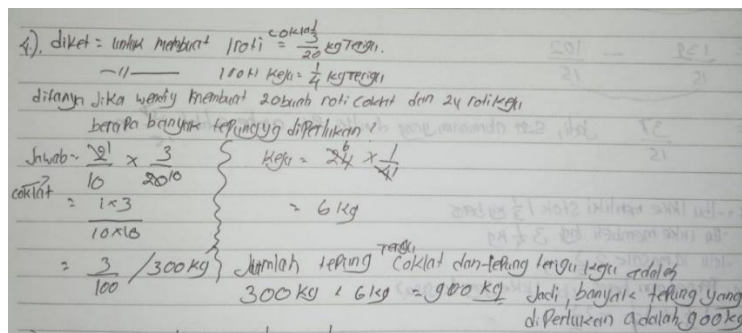 4). diket = untuk membuat 1 roti coklat = 3/20 kg Terigu.
—11— 1 roti keju = 1/4 kg Terigu
ditanya Jika wendy membuat 20 buah roti coklat dan 24 roti keju
berapa banyak tepung yg diperlukan?
Jawab = 2̶ 1/10 x 3/20 10
coklat
= 1x3/10x10
= 3/100 /300 kg
keju = 24 6 x 1/4 1
= 6 kg
Jumlah tepung terigu coklat dan tepung terigu keju adalah
300 kg + 6 kg = 900 kg Jadi, banyak tepung yang
diperlukan adalah 900 kg
139/15 - 102/15
37/15